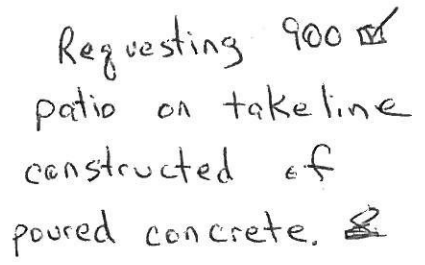 Requesting 900 ☑
patio on takeline
constructed of
poured concrete.